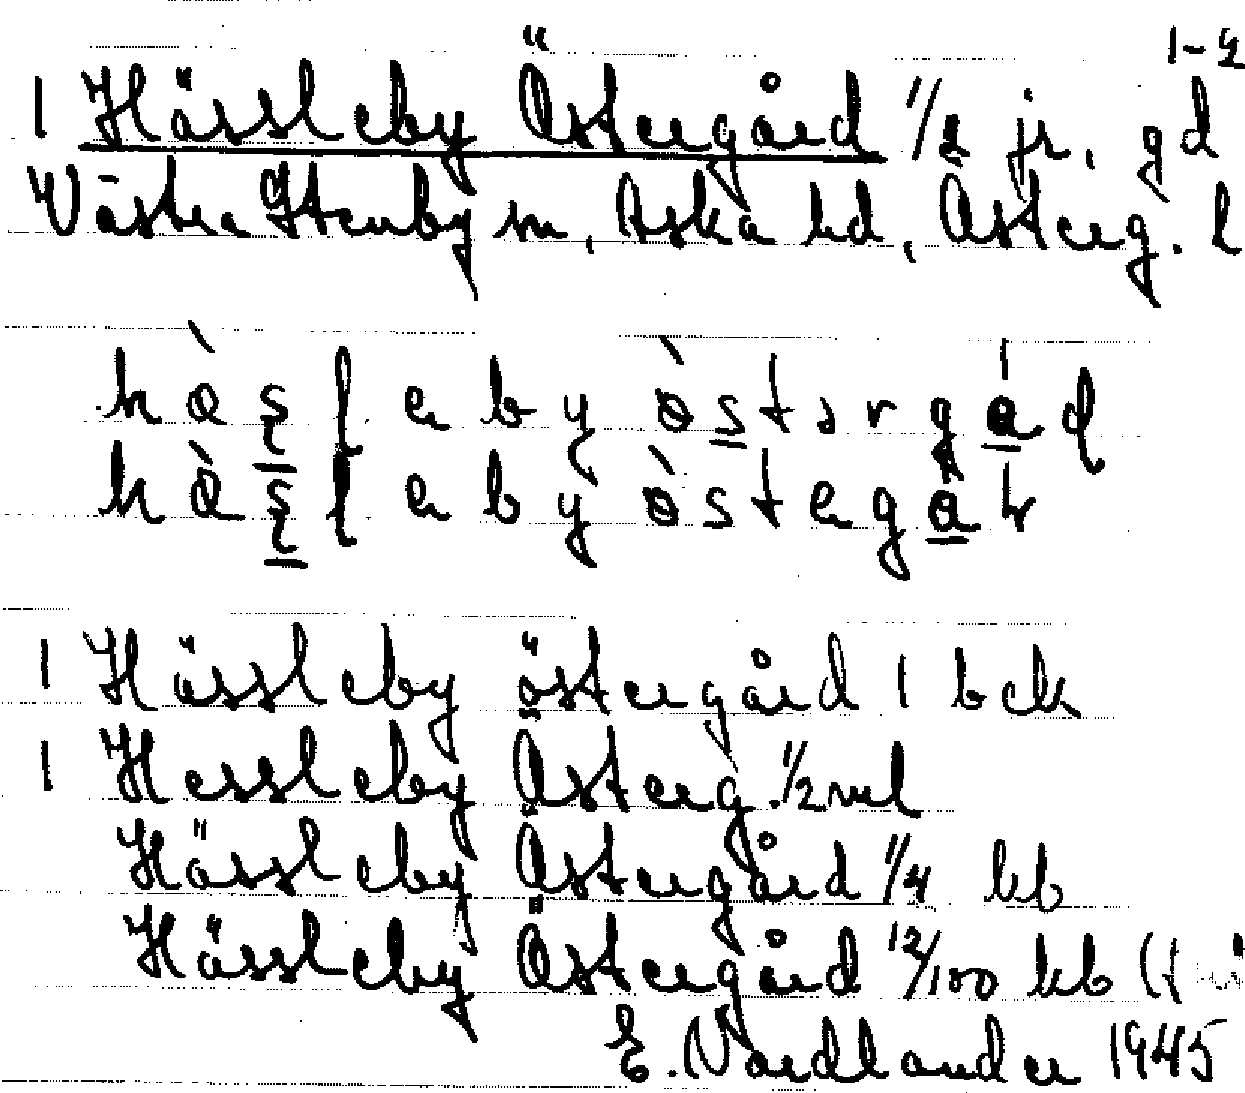 1-4
1 Hässleby Östergård 1/2 jr, gd
Västra Stenby sn, Aska hd, Österg. l
hàs̱l eby ö̀stərgád
hàs̱l eby ö̀stegár
1 Hässleby östergård 1 bck
1 Hessleby Österg. 1/2 ml
Hässleby Östergård 1/4 kb
Hässleby Östergård 12/100 kb (
E. Nordlander 1945